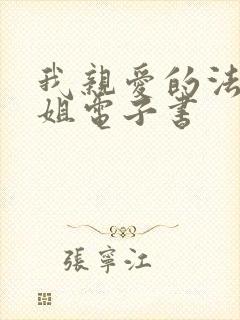 我親愛的法
姐電子書
張寧江